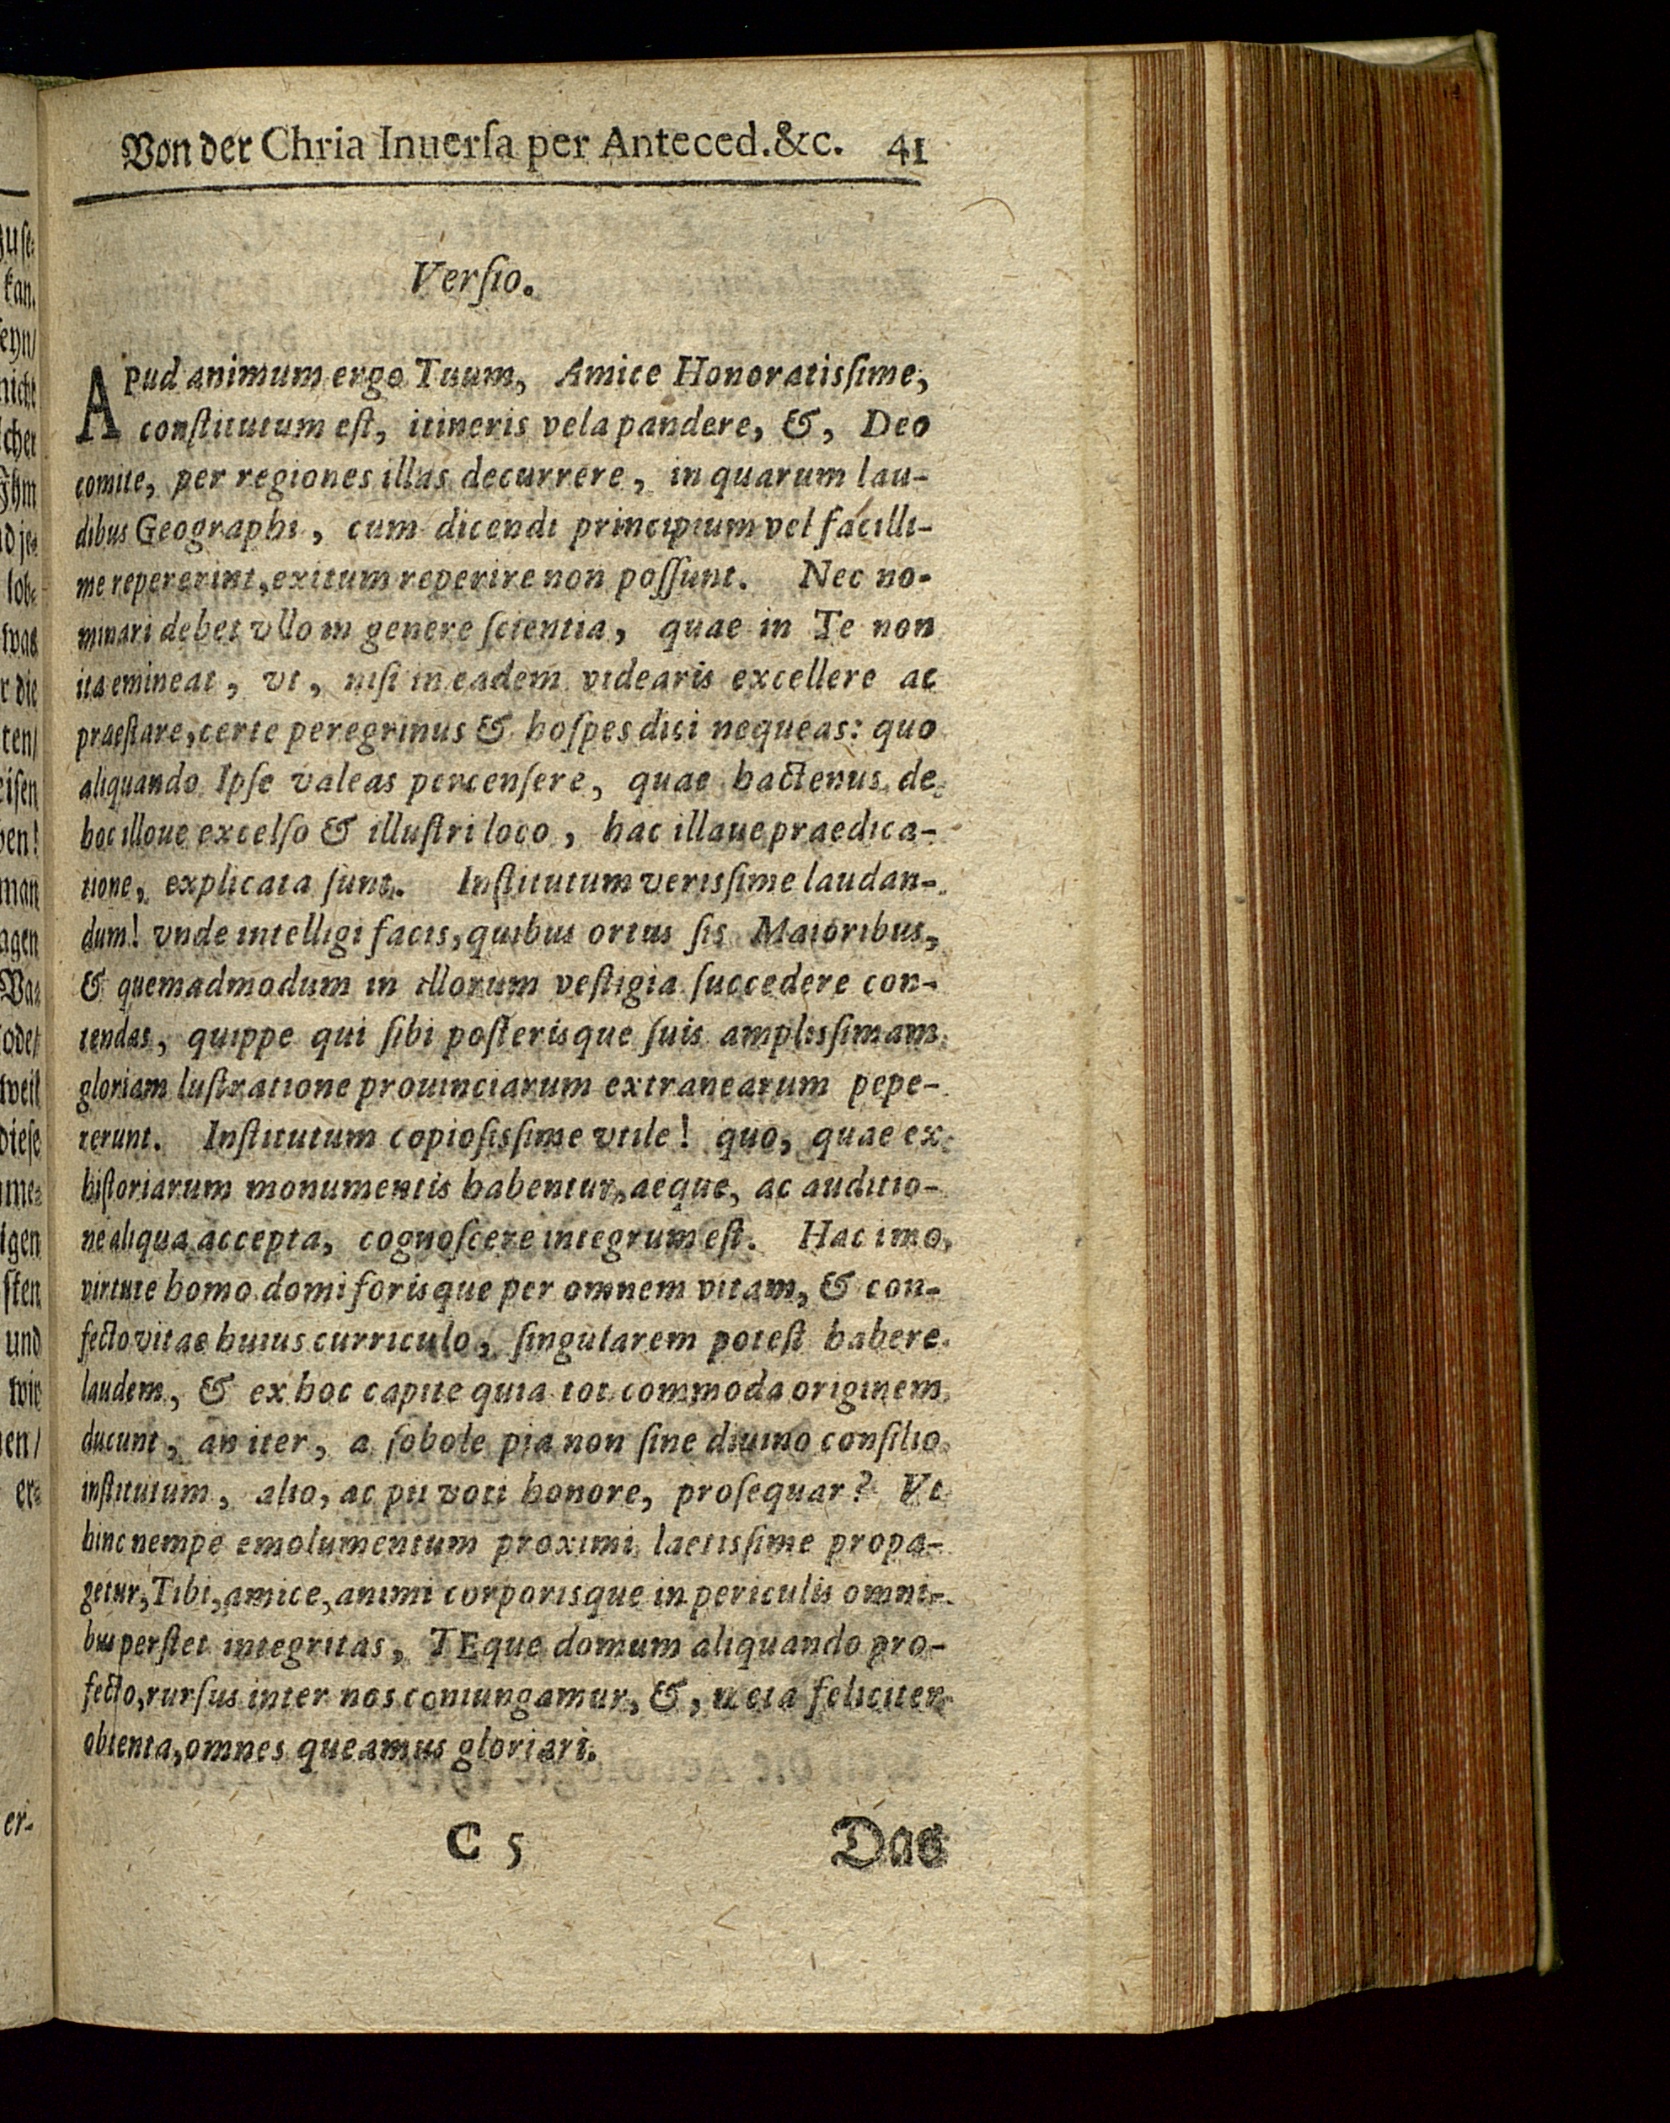 Von der Chria Inuerſa per Anteced. &c. 41
Verſio.
APud animum ergo Tuum, Amice Honoratisſime,
conſtitutum eſt, itineris vela pandere, &, Deo
comite, per regiones illas decurrere, in quarum lau-
dibus Geographi, cum dicendi principium vel facilli-
me repererint, exitum reperire non poſſunt. Nec no-
minari debet vllo in genere ſcientia, quae in Te non
ita emineat, vt, niſi in eadem videaris excellere ac
praeſtare, certe peregrinus & hoſpes dici nequeas: quo
aliquando Ipſe valeas percenſere, quae hactenus de
hoc illoue excelſo & illuſtri loco, hac illaue praedica-
tione, explicata ſunt. Inſtitutum verisſime laudan-
dum! vnde intelligi facis, quibus ortus ſis Maioribus,
& quemadmodum in illorum veſtigia ſuccedere con-
tendas, quippe qui ſibi poſterisque ſuis amplisſimam
gloriam luſtratione prouinciarum extranearum pepe-
rerunt. Inſtitutum copioſisſime vtile! quo, quae ex
hiſtoriarum monumentis habentur, aeque, ac auditio-
ne aliqua accepta, cognoſcere integrum eſt. Hac imo
virtute homo domi forisque per omnem vitam, & con-
fecto vitae huius curriculo, ſingularem poteſt habere
laudem, & ex hoc capite quia tot commoda originem
ducunt, an iter, a ſobole pia non ſine diuino conſilio
inſtitutum, alio, ac pii voti honore, proſequar? Vt
hinc nempe emolumentum proximi laetisſime propa-
getur, Tibi, amice, animi corporisque in periculis omni-
bus perſtet integritas, TEque domum aliquando pro-
fecto, rurſus inter nos coniungamur, &, meta feliciter
obtenta, omnes queamus gloriari.
C 5 Das